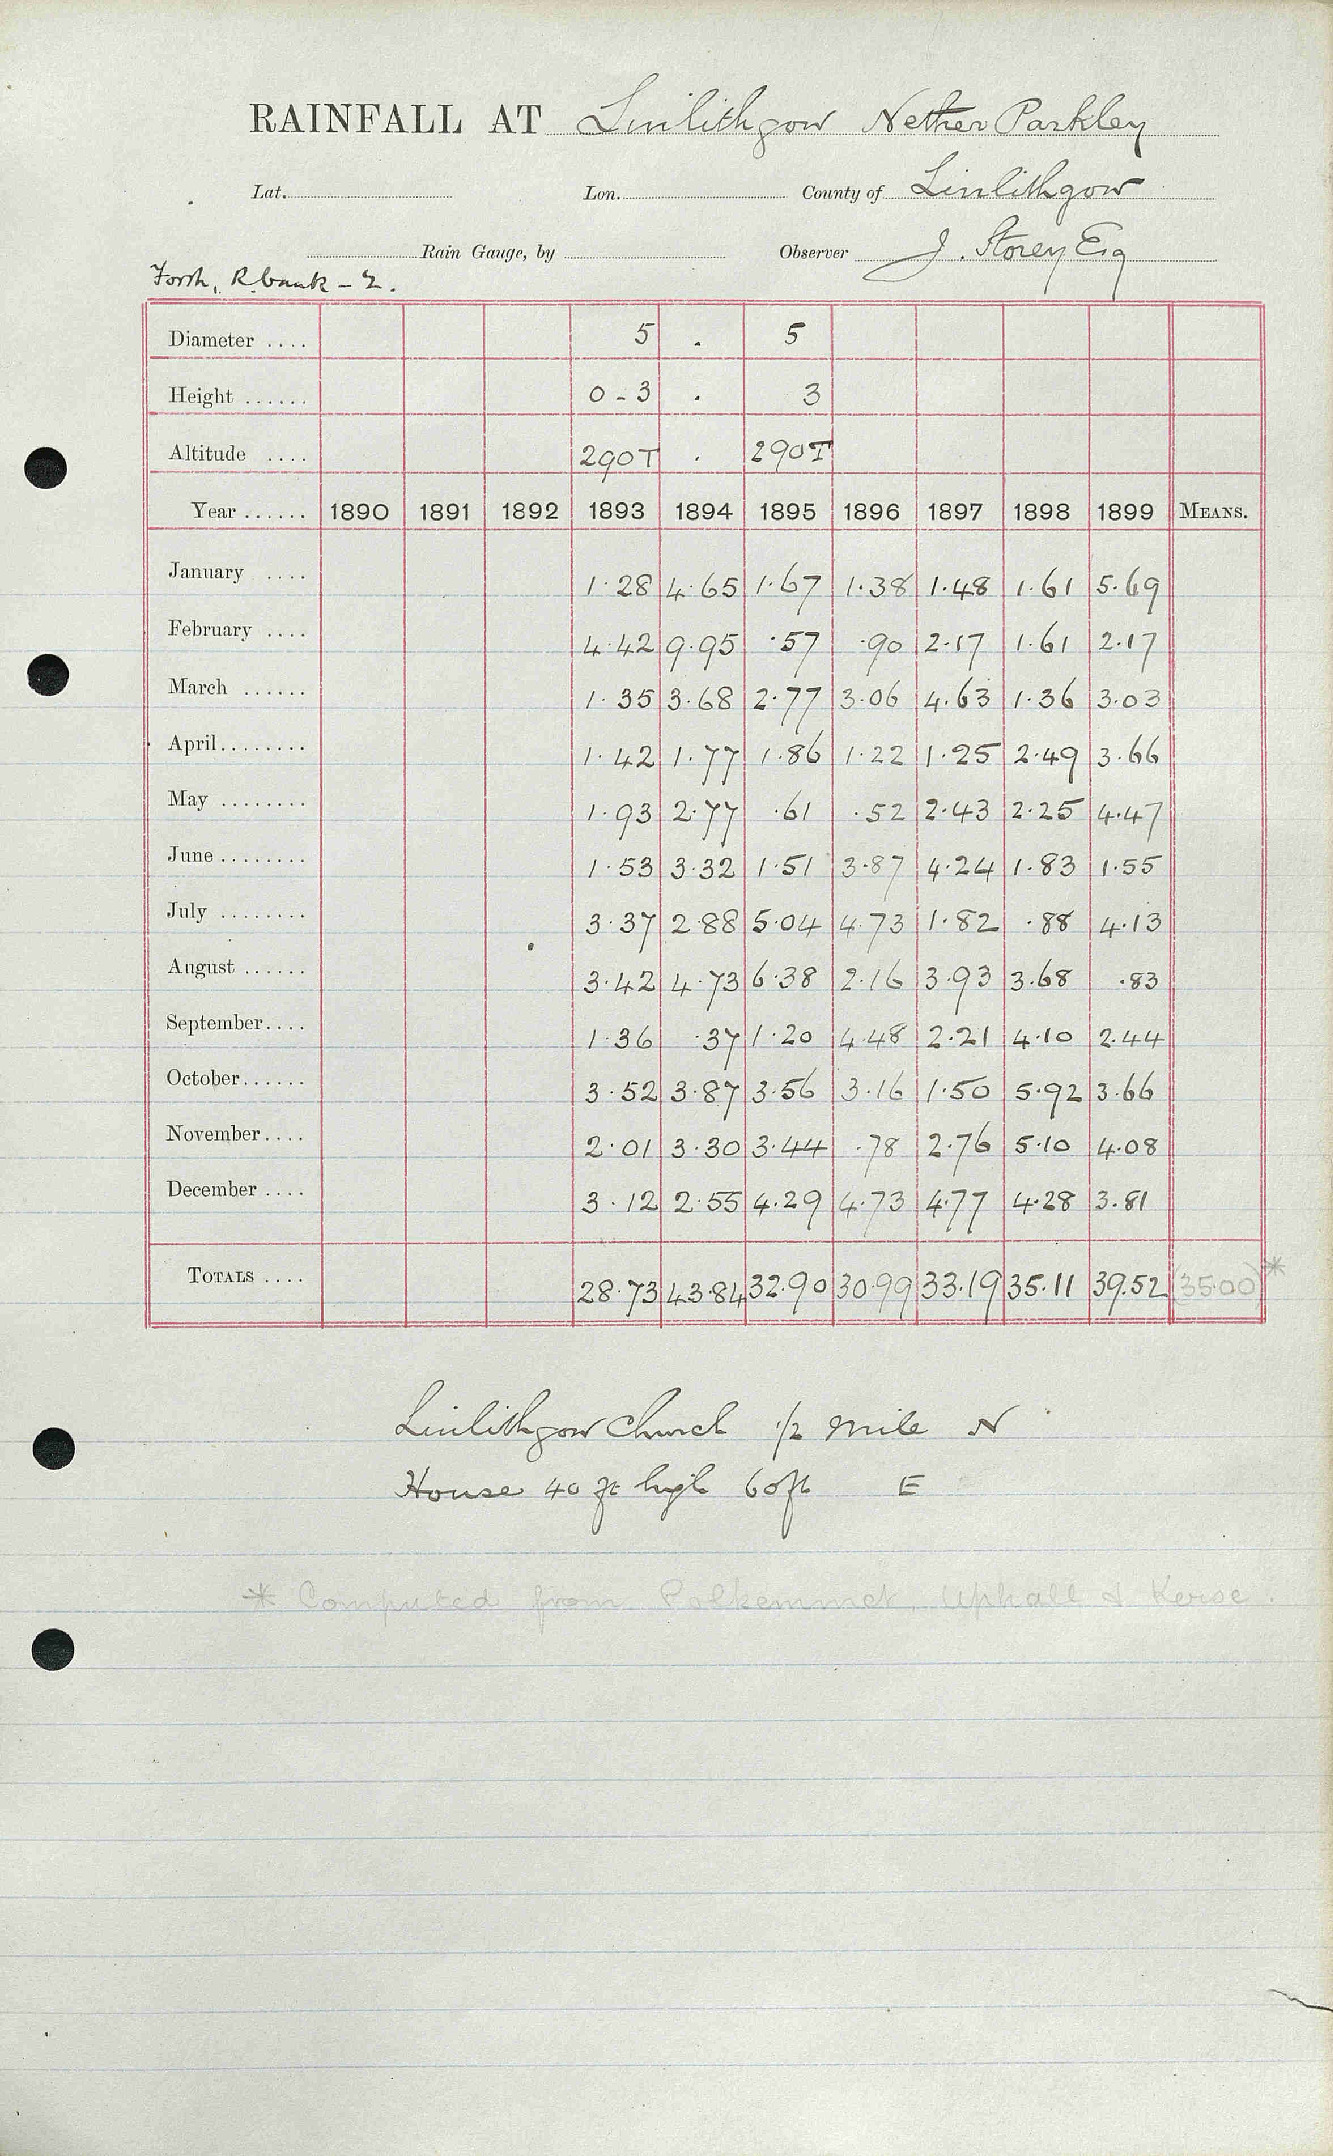 RAINFALL AT Linlithgow Nether Parkley
Lat. Lon. County of Linlithgow
Rain Gauge, by Observer J. Storey Esq
Forth, R. bank - 2.
Diameter .... 5 . 5
Height ...... 0-3 . 3
Altitude .... 290T . 290T
Year ...... 1890 1891 1892 1893 1894 1895 1896 1897 1898 1899 MEANS.
January .... 1.28 4.65 1.67 1.38 1.48 1.61 5.69
February .... 4.42 9.95 .57 .90 2.17 1.61 2.17
March ...... 1.35 3.68 2.77 3.06 4.63 1.36 3.03
April........ 1.42 1.77 1.86 1.22 1.25 2.49 3.66
May ........ 1.93 2.77 .61 .52 2.43 2.25 4.47
June ........ 1.53 3.32 1.51 3.87 4.24 1.83 1.55
July ........ 3.37 2.88 5.04 4.73 1.82 .88 4.13
August ...... 3.42 4.73 6.38 2.16 3.93 3.68 .83
September.... 1.36 .37 1.20 4.48 2.21 4.10 2.44
October...... 3.52 3.87 3.56 3.16 1.50 5.92 3.66
November.... 2.01 3.30 3.44 .78 2.76 5.10 4.08
December .... 3.12 2.55 4.29 4.73 4.77 4.28 3.81
TOTALS .... 28.73 43.84 32.90 30.99 33.19 35.11 39.52 (35.00)*
Linlithgow Church 1/2 mile N
House 40 ft high 60 ft E
* Computed from Polkemmet, Uphall & Kerse.